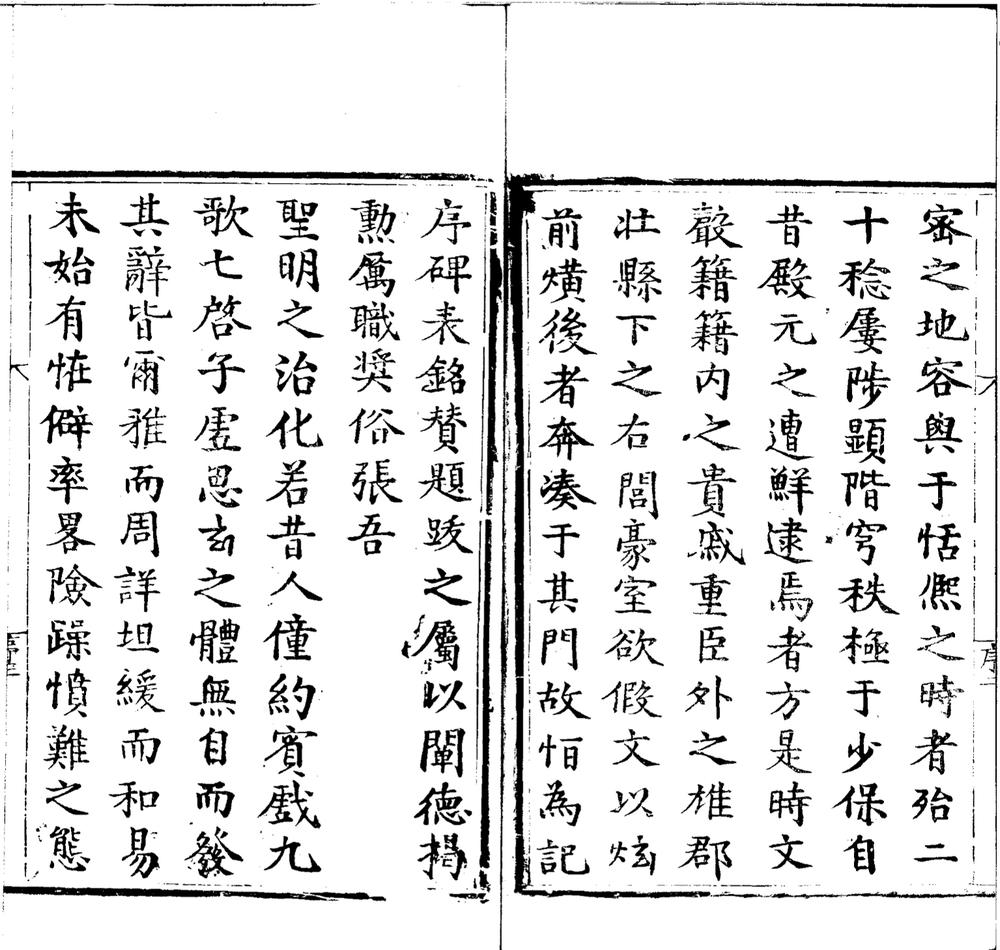 密之地容與于恬熈之時者殆二
十稔屢陟顯階穹秩極于少保自
昔殿元之遭鮮逮焉者方是時文
㲉籍籍内之貴戚重臣外之雄郡
壯縣下之右閭豪室欲假文以炫
前熿後者奔湊于其門故怕為記
序碑表銘賛題跋之屬以闡德揭
勲厲職奬俗張吾
聖明之治化若昔人僮約賓戲九
歌七啓子虛思玄之體無自而發
其辭皆爾雅而周詳坦緩而和易
未始有恠僻率畧險躁憤難之態